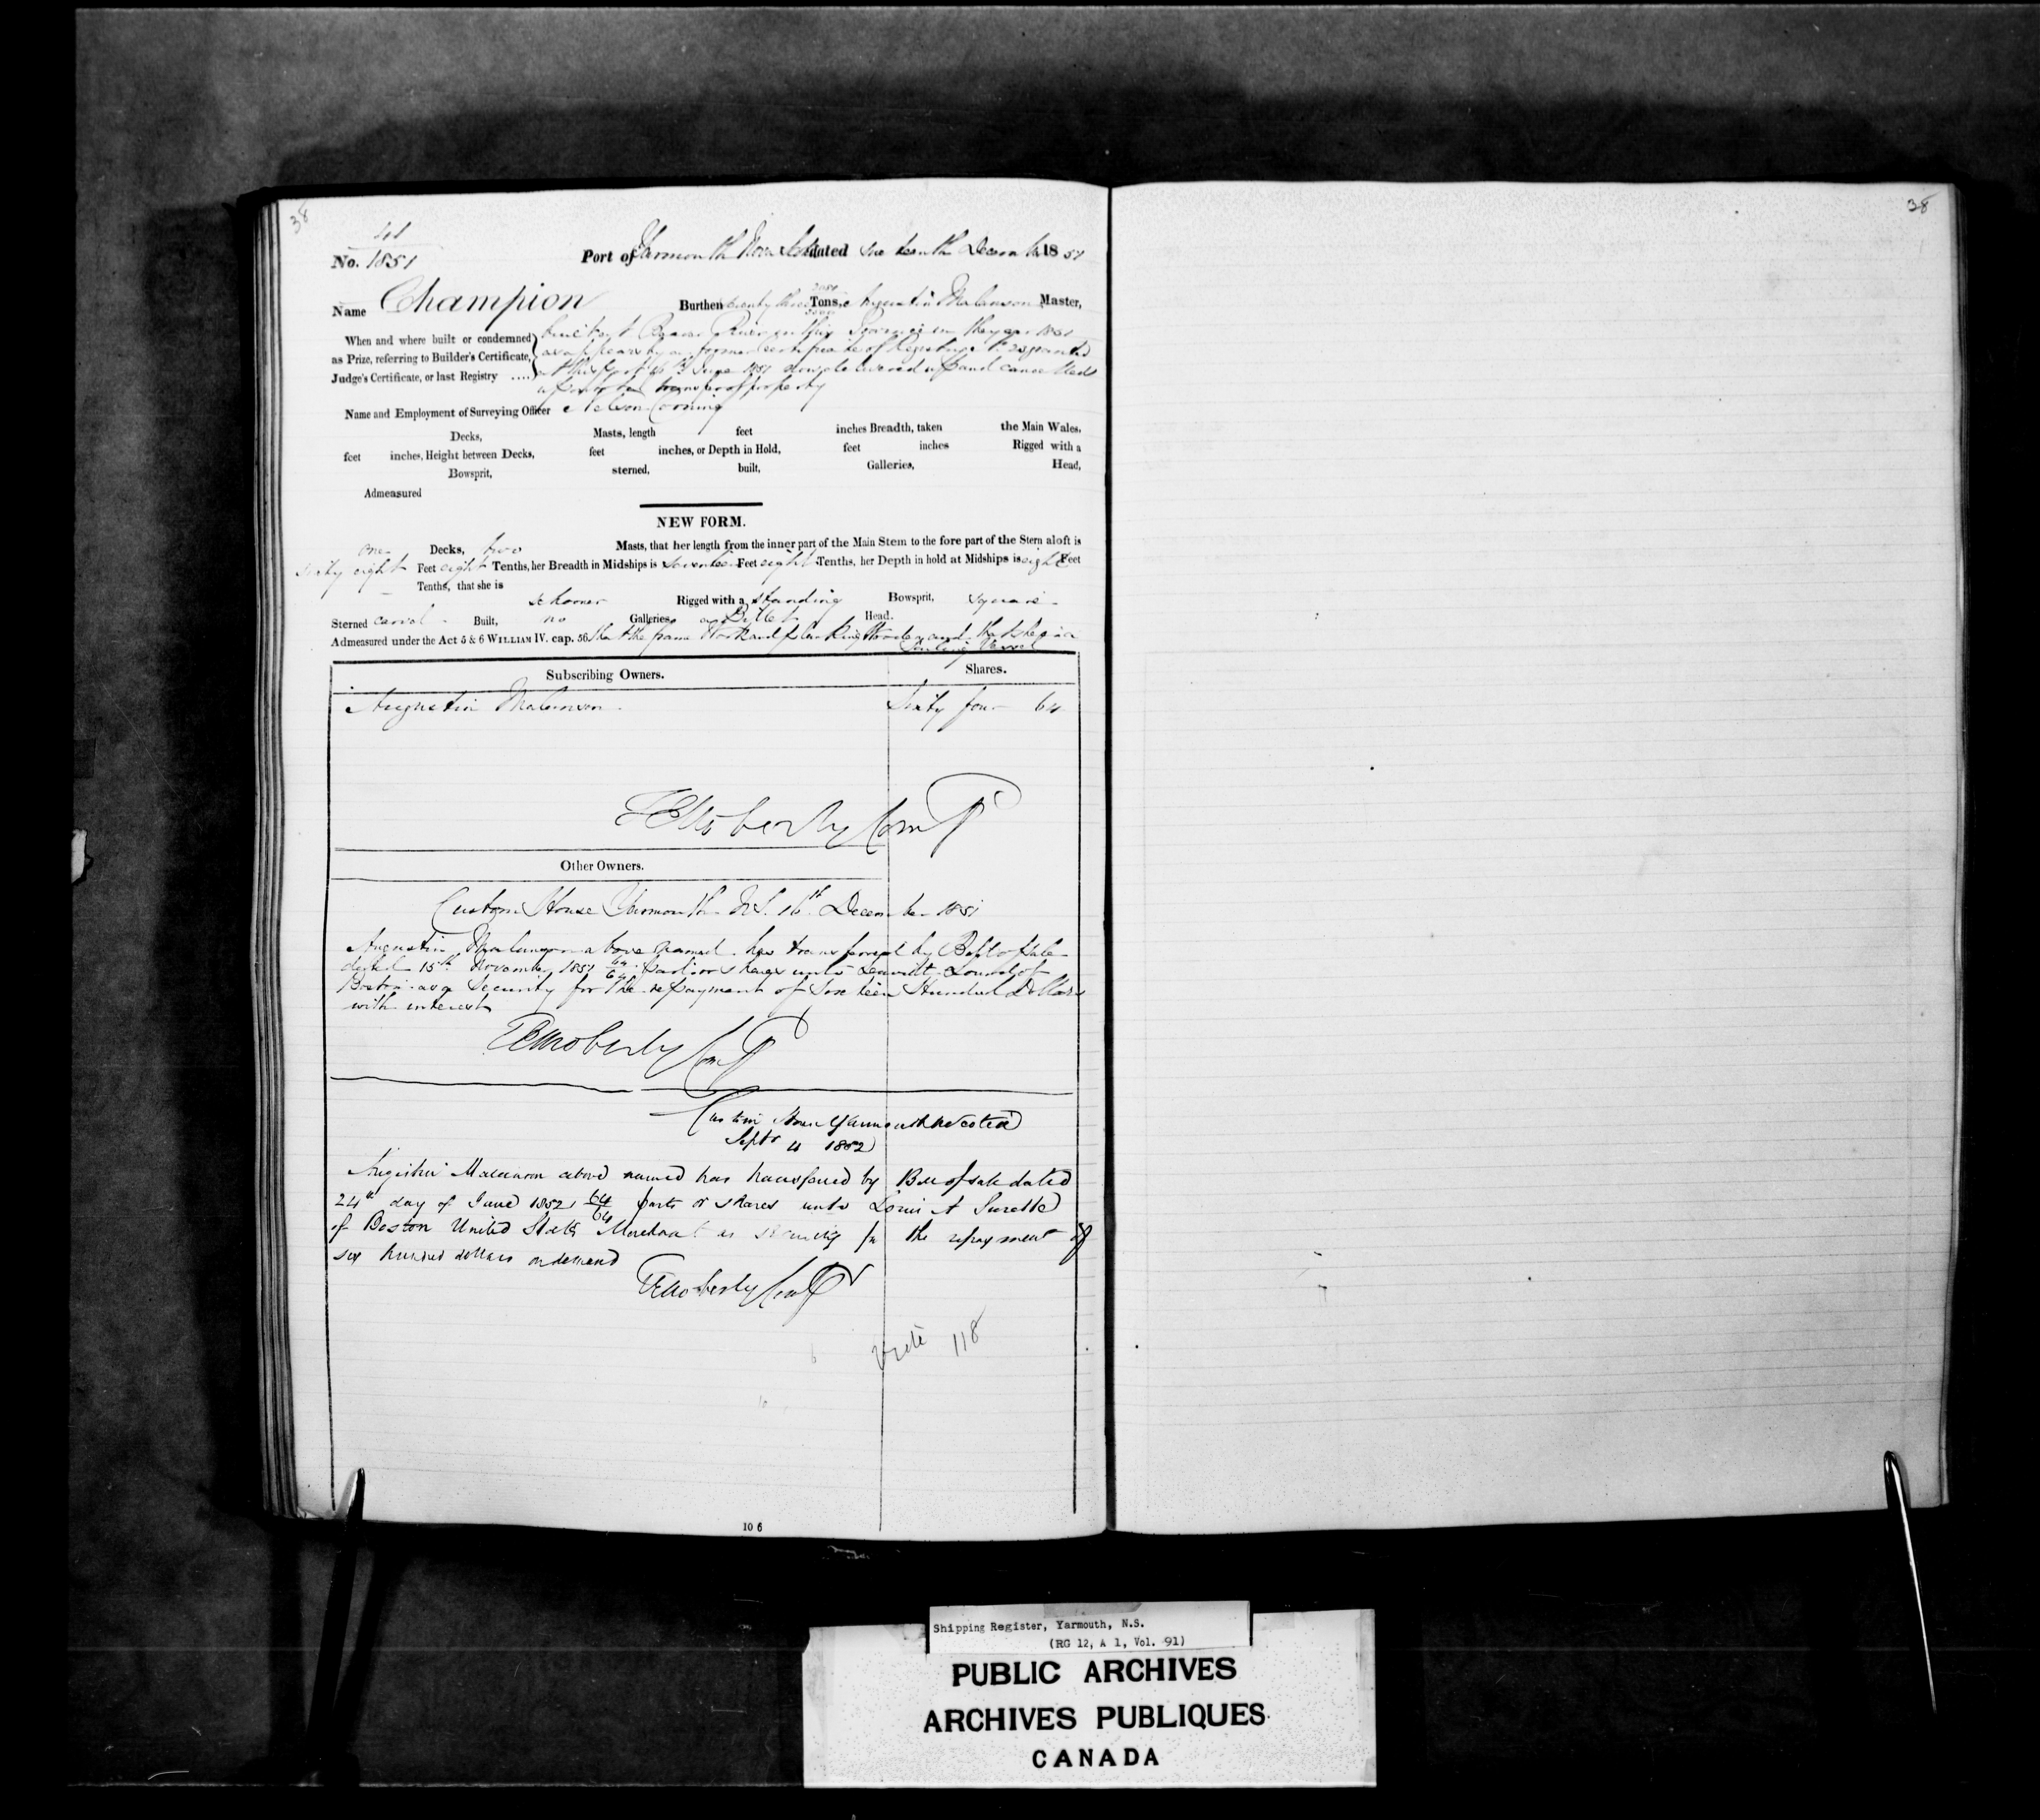 38
38
41
No. 1851
Port of Yarmouth Nova Scotia dated Sixteenth December 1851
Name Champion Burthen Tons, Augustin Malanson Master,
When and where built or condemned
as Prize, referring to Builder's Certificate,
Judge's Certificate, or last Registry ....
built at River in this Province in the year 1851
as appears by a former Certificate of Registry No. 20 granted
at this Port 16th June 1851 delivered up and cancelled
transfer of property
Name and Employment of Surveying Officer Nelson Corning
Decks, Masts, length feet inches Breadth, taken the Main Wales,
feet inches, Height between Decks, feet inches, or Depth in Hold, feet inches Rigged with a
Bowsprit, sterned, built, Galleries, Head,
Admeasured
NEW FORM.
one Decks, two Masts, that her length from the inner part of the Main Stem to the fore part of the Stern aloft is
sixty eight Feet eight Tenths, her Breadth in Midships is seventeen Feet eight Tenths, her Depth in hold at Midships is eight Feet
Tenths, that she is
Schooner Rigged with a standing Bowsprit, square
Sterned carvel Built, no Galleries, a Billet Head.
Admeasured under the Act 5 & 6 WILLIAM IV. cap. 56. that the frame Work and planking Wooden and that she is a
Sailing Vessel
Subscribing Owners. Shares.
Augustin Malanson Sixty four 64
Moberly Compt
Other Owners.
Custom House Yarmouth N.S. 16th December 1851
Augustin Malanson above named has transferred by Bill of Sale
dated 15th November 1851 64/64 parts or shares unto of
Boston as a Security for the repayment of Sixteen Hundred Dollars
with interest
Moberly Compt
Custom House Yarmouth N Scotia
Sept 4 1852
Augustin Malanson above named has transferred by Bill of sale dated
24th day of June 1852 64/64 parts or shares unto Louis A Surette
of Boston United States Merchant as security for the repayment of
six hundred dollars on demand
Moberly Compt
Vide 118
10 6
Shipping Register, Yarmouth, N.S.
(RG 12, A 1, Vol. 91)
PUBLIC ARCHIVES
ARCHIVES PUBLIQUES
CANADA